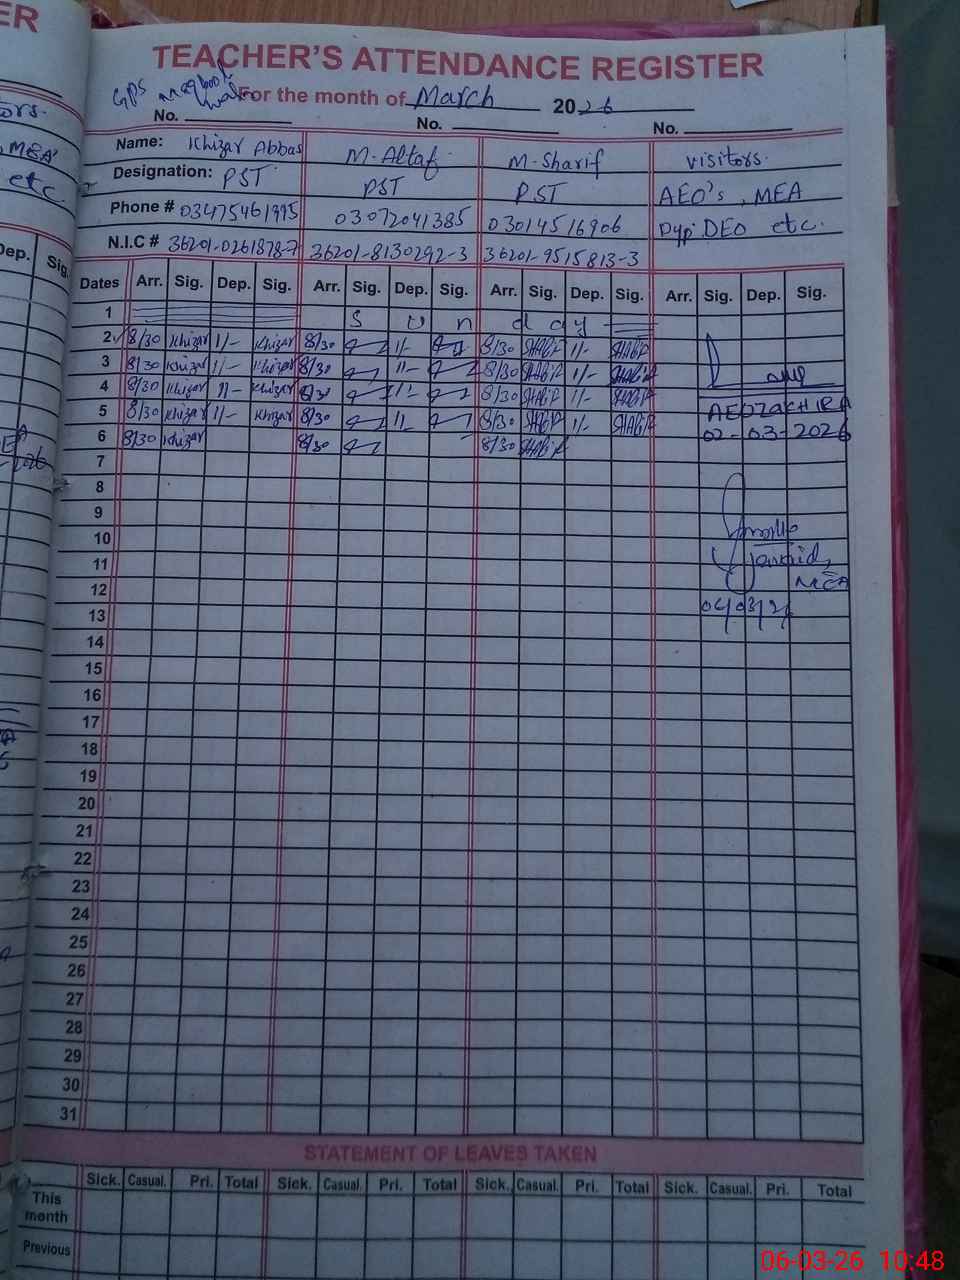 TEACHER'S ATTENDANCE REGISTER
GPS
For the month of March 2026
No. No. No.
Name: Khizar Abbas M-Altaf M-Sharif visitors.
Designation: PST PST PST AEO's, MEA
Phone # 03475461995 03072041385 03014516906 Dyp: DEO etc.
N.I.C # 36201-0261878-7 36201-8130292-3 36201-9515813-3
Dates Arr. Sig. Dep. Sig. Arr. Sig. Dep. Sig. Arr. Sig. Dep. Sig. Arr. Sig. Dep. Sig.
1 S u n d a y
2 8/30 Khizar 1/- Khizar 8/30 1/- 8/30 1/-
3 8/30 Khizar 1/- Khizar 8/30 11/- 8/30 1/-
4 8/30 Khizar 1/- Khizar 8/30 1/- 8/30 1/-
5 8/30 Khizar 1/- Khizar 8/30 1/- 8/30 1/- AEO
6 8/30 Khizar 8/30 8/30 02-03-2026
7
8
9
10
11
12 MEA
13
14
15
16
17
18
19
20
21
22
23
24
25
26
27
28
29
30
31
STATEMENT OF LEAVES TAKEN
Sick. Casual. Pri. Total Sick. Casual. Pri. Total Sick. Casual. Pri. Total Sick. Casual. Pri. Total
This month
Previous
ER
MEA
etc
Dep. Sig.
06-03-26 10:48